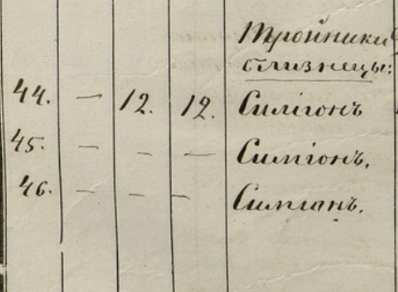 Тройники
близнецы:
44. — 12. 12. Симіонъ
45. — — — Симіонъ,
46. — — — Симпанъ.